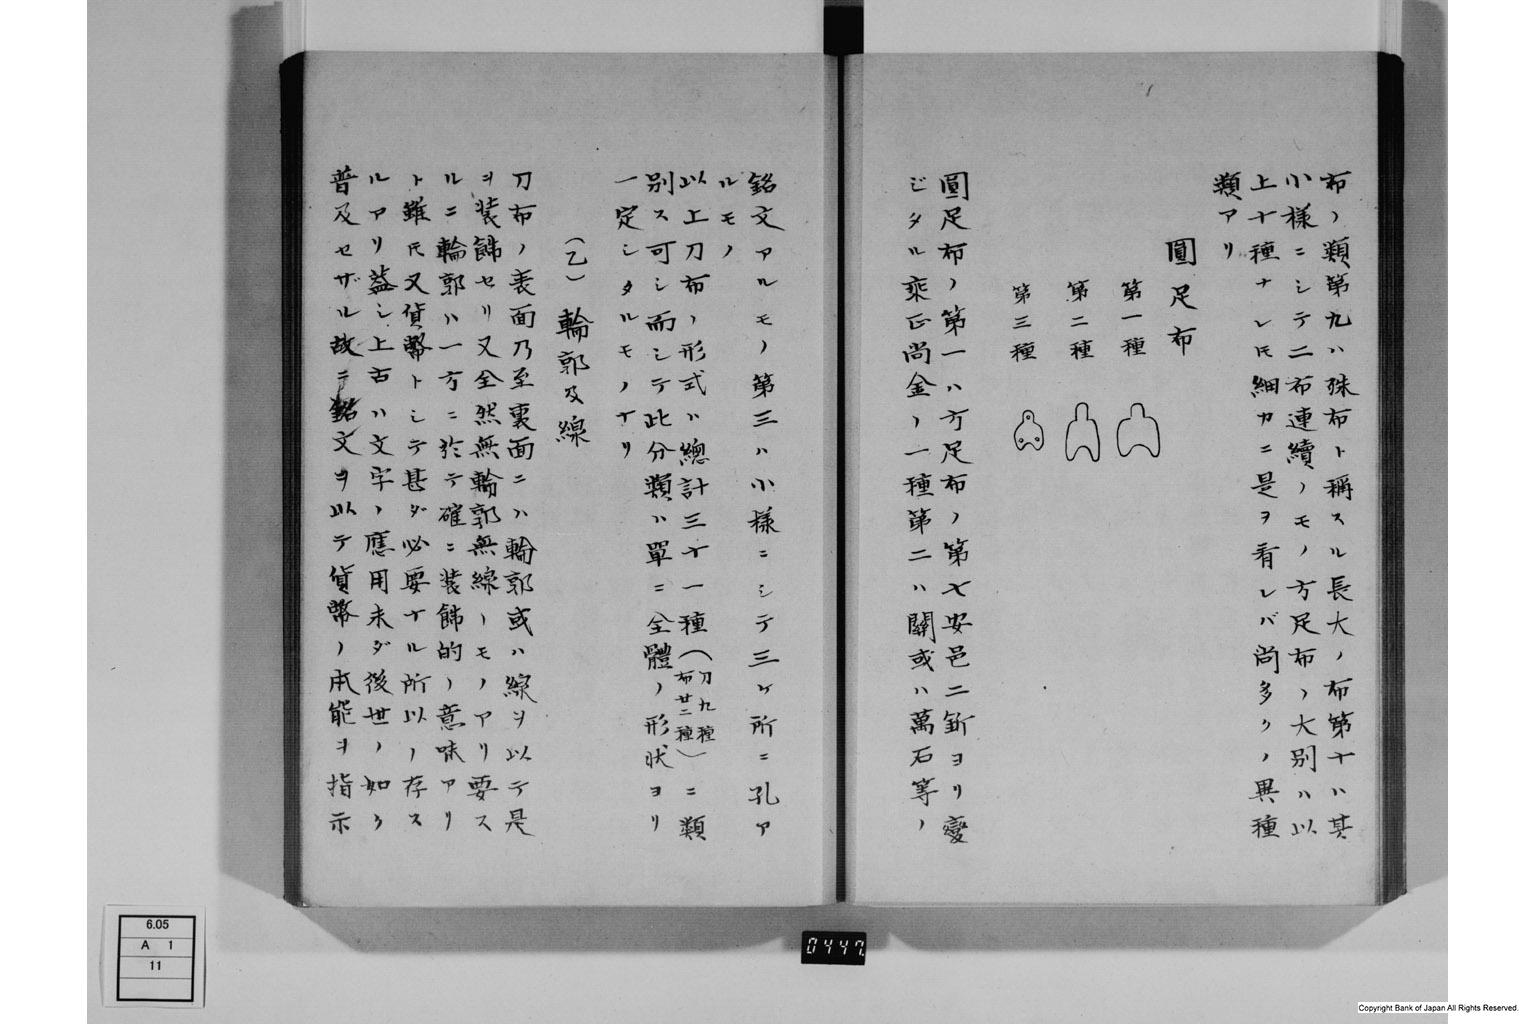 布ノ類第九ハ殊布ト稱スル長大ノ布第十ハ其
小樣ニシテ二布連續ノモノ方足布ノ大別ハ以
上十種ナレ𪜈細カニ是ヲ看レバ尚多クノ異種
類アリ
圓足布
第一種
第二種
第三種
圓足布ノ第一ハ方足布ノ第七安邑二釿ヨリ變
ジタル乘正尚金ノ一種第二ハ關或ハ萬石等ノ
銘文アルモノ第三ハ小樣ニシテ三ヶ所ニ孔ア
ルモノ
以上刀布ノ形式ハ總計三十一種(刀九種布廿二種)ニ類
別ス可シ而シテ此分類ハ單ニ全體ノ形狀ヨリ
一定シタルモノナリ
(乙)輪郭及線
刀布ノ表面乃至裏面ニハ輪郭或ハ線ヲ以テ是
ヲ装飾セリ又全然無輪郭無線ノモノアリ要ス
ルニ輪郭ハ一方ニ於テ確ニ装飾的ノ意味アリ
ト雖𪜈又貨幣トシテ甚ダ必要ナル所以ノ存ス
ルアリ蓋シ上古ハ文字ノ應用未ダ後世ノ如ク
普及セザル故ニ銘文ヲ以テ貨幣ノ本能ヲ指示
6.05
A 1
11
0447
Copyright Bank of Japan All Rights Reserved.